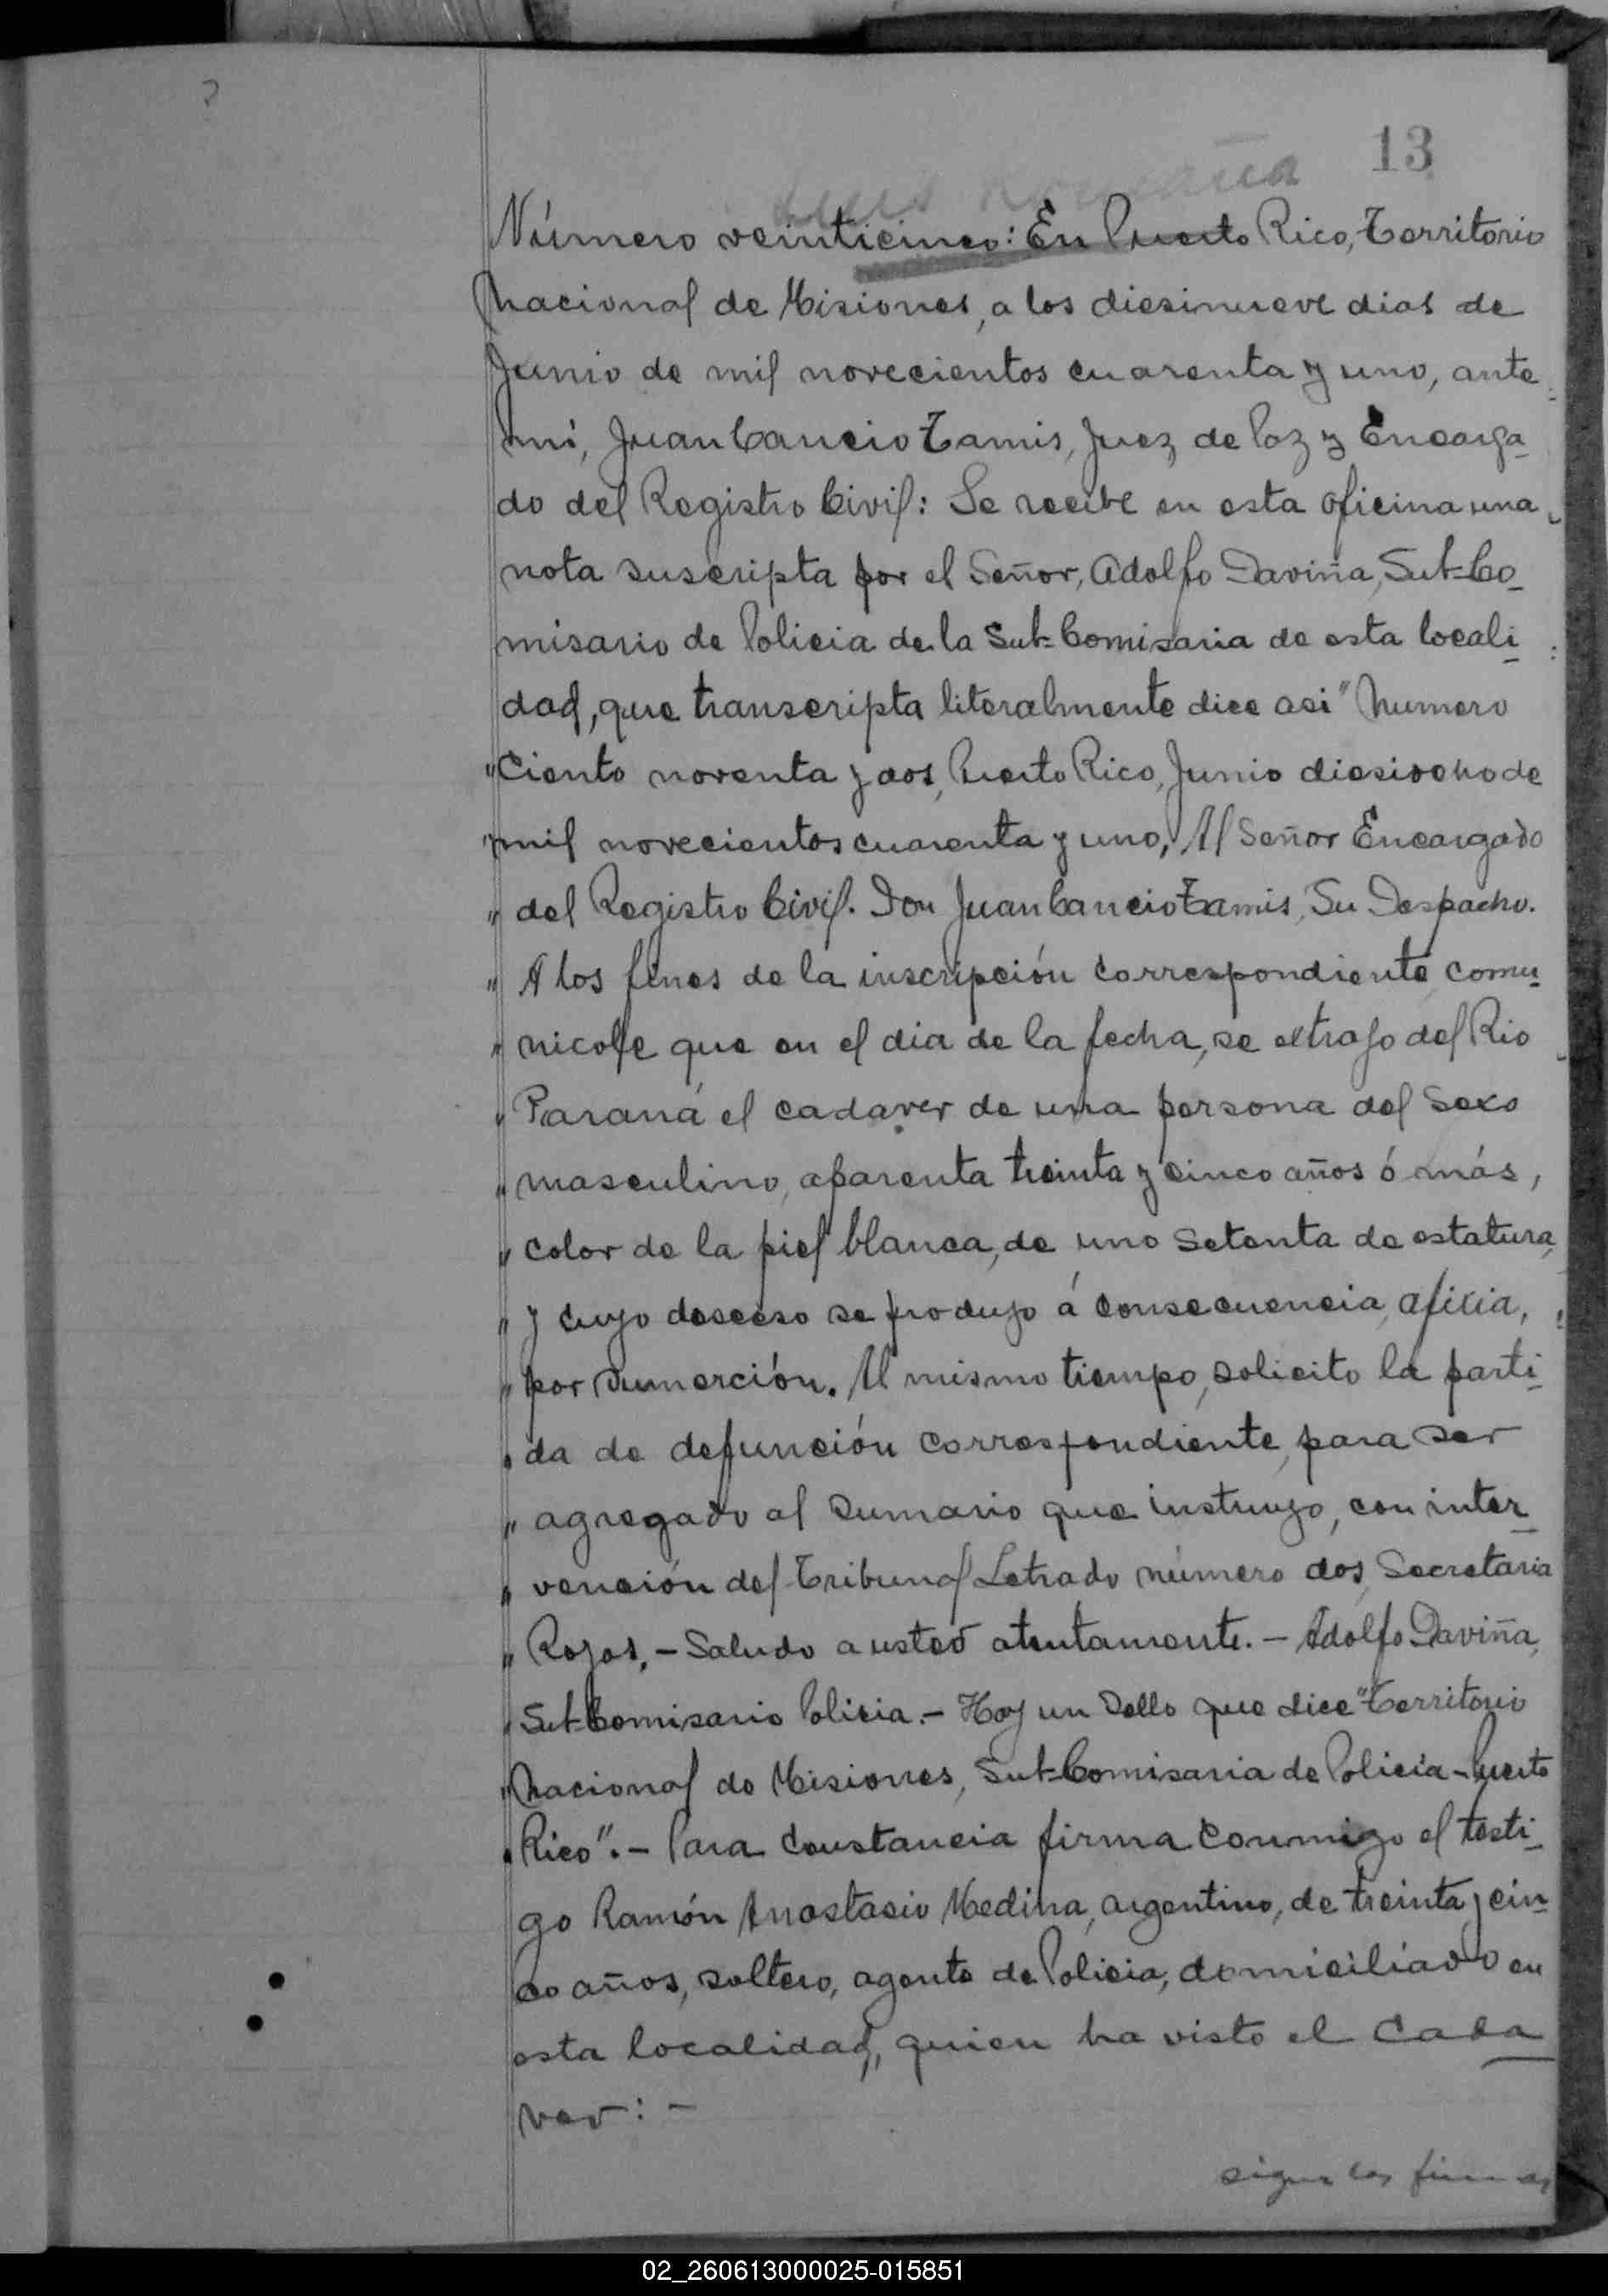 ?
13
Número veinticinco: En Puerto Rico, Territorio
Nacional de Misiones, a los diesinueve dias de
Junio de mil novecientos cuarenta y uno, ante
mi, Juan Cancio Tamis, Juez de Paz y Encarga-
do del Registro Civil: Se recibe en esta oficina una
nota suscripta por el Señor, Adolfo Daviña, Sub-Co-
misario de Policia de la Sub-Comisaria de esta locali-
dad, que transcripta literalmente dice asi "Numero
"Ciento noventa y dos, Puerto Rico, Junio diesiocho de
"mil novecientos cuarenta y uno, Al Señor Encargado
" del Registro Civil. Don Juan Cancio Tamis, Su Despacho.
" A los fines de la inscripción correspondiente, comu-
" nicole que en el dia de la fecha, se extrajo del Rio
" Paraná el cadaver de una persona del sexo
" masculino, aparenta treinta y cinco años ó más,
" color de la piel blanca, de uno setenta de estatura,
" y cuyo deceso se produjo á consecuencia, afixia,
" por sumerción. Al mismo tiempo, solicito la parti-
" da de defunción correspondiente, para ser
" agregado al sumario que instruyo, con inter-
" vención del Tribunal Letrado número dos, Secretaria
" Rojas, - Saludo a usted atentamente. - Adolfo Daviña,
" Sub-Comisario Policia. - Hay un Sello que dice "Territorio
" Nacional de Misiones, Sub-Comisaria de Policia - Puerto
" Rico". - Para Constancia firma conmigo el testi-
go Ramón Anastasio Medina, argentino, de treinta y cin-
co años, soltero, agente de Policia, domiciliado en
esta localidad, quien ha visto el Cada-
ver: -
sigue las firmas
02_260613000025-015851